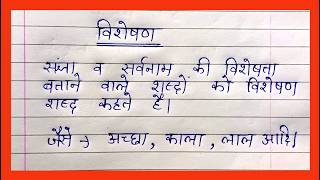 विशेषण
संज्ञा व सर्वनाम की विशेषता
बताने वाले शब्दों को विशेषण
शब्द कहते है।
जैसे → अच्छा, काला, लाल आदि।